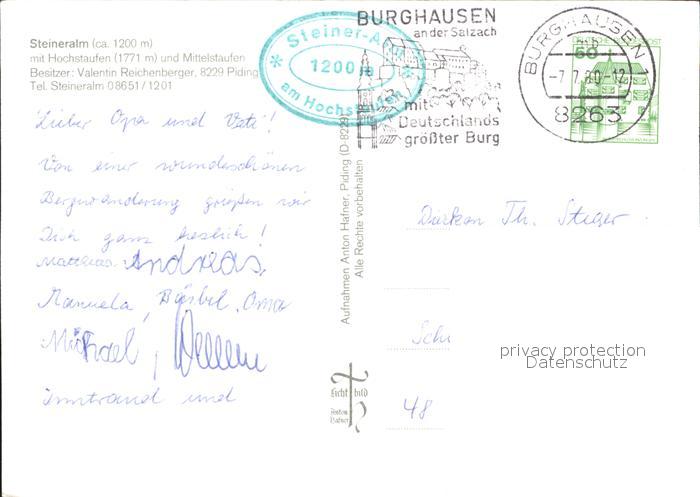 Steineralm (ca. 1200 m)
mit Hochstaufen (1771 m) und Mittelstaufen
Besitzer: Valentin Reichenberger, 8229 Piding
Tel. Steineralm 08651/1201
Steiner-Alm
1200 m
am Hochstaufen
BURGHAUSEN
an der Salzach
mit
Deutschlands
größter Burg
BURGHAUSEN 1
-7.7.80-12
8263
Lieber Opa und Vati!
Von einer wunderschönen
Bergwanderung grüßen wir
Dich ganz herzlich!
Matthias, Andreas,
Manuela, Bärbel, Oma
Michael,
Irmtraud und
Aufnahmen Anton Hafner, Piding (D-8229)
Alle Rechte vorbehalten
Licht bild
Anton
Hafner
Th. Steger
48
privacy protection
Datenschutz